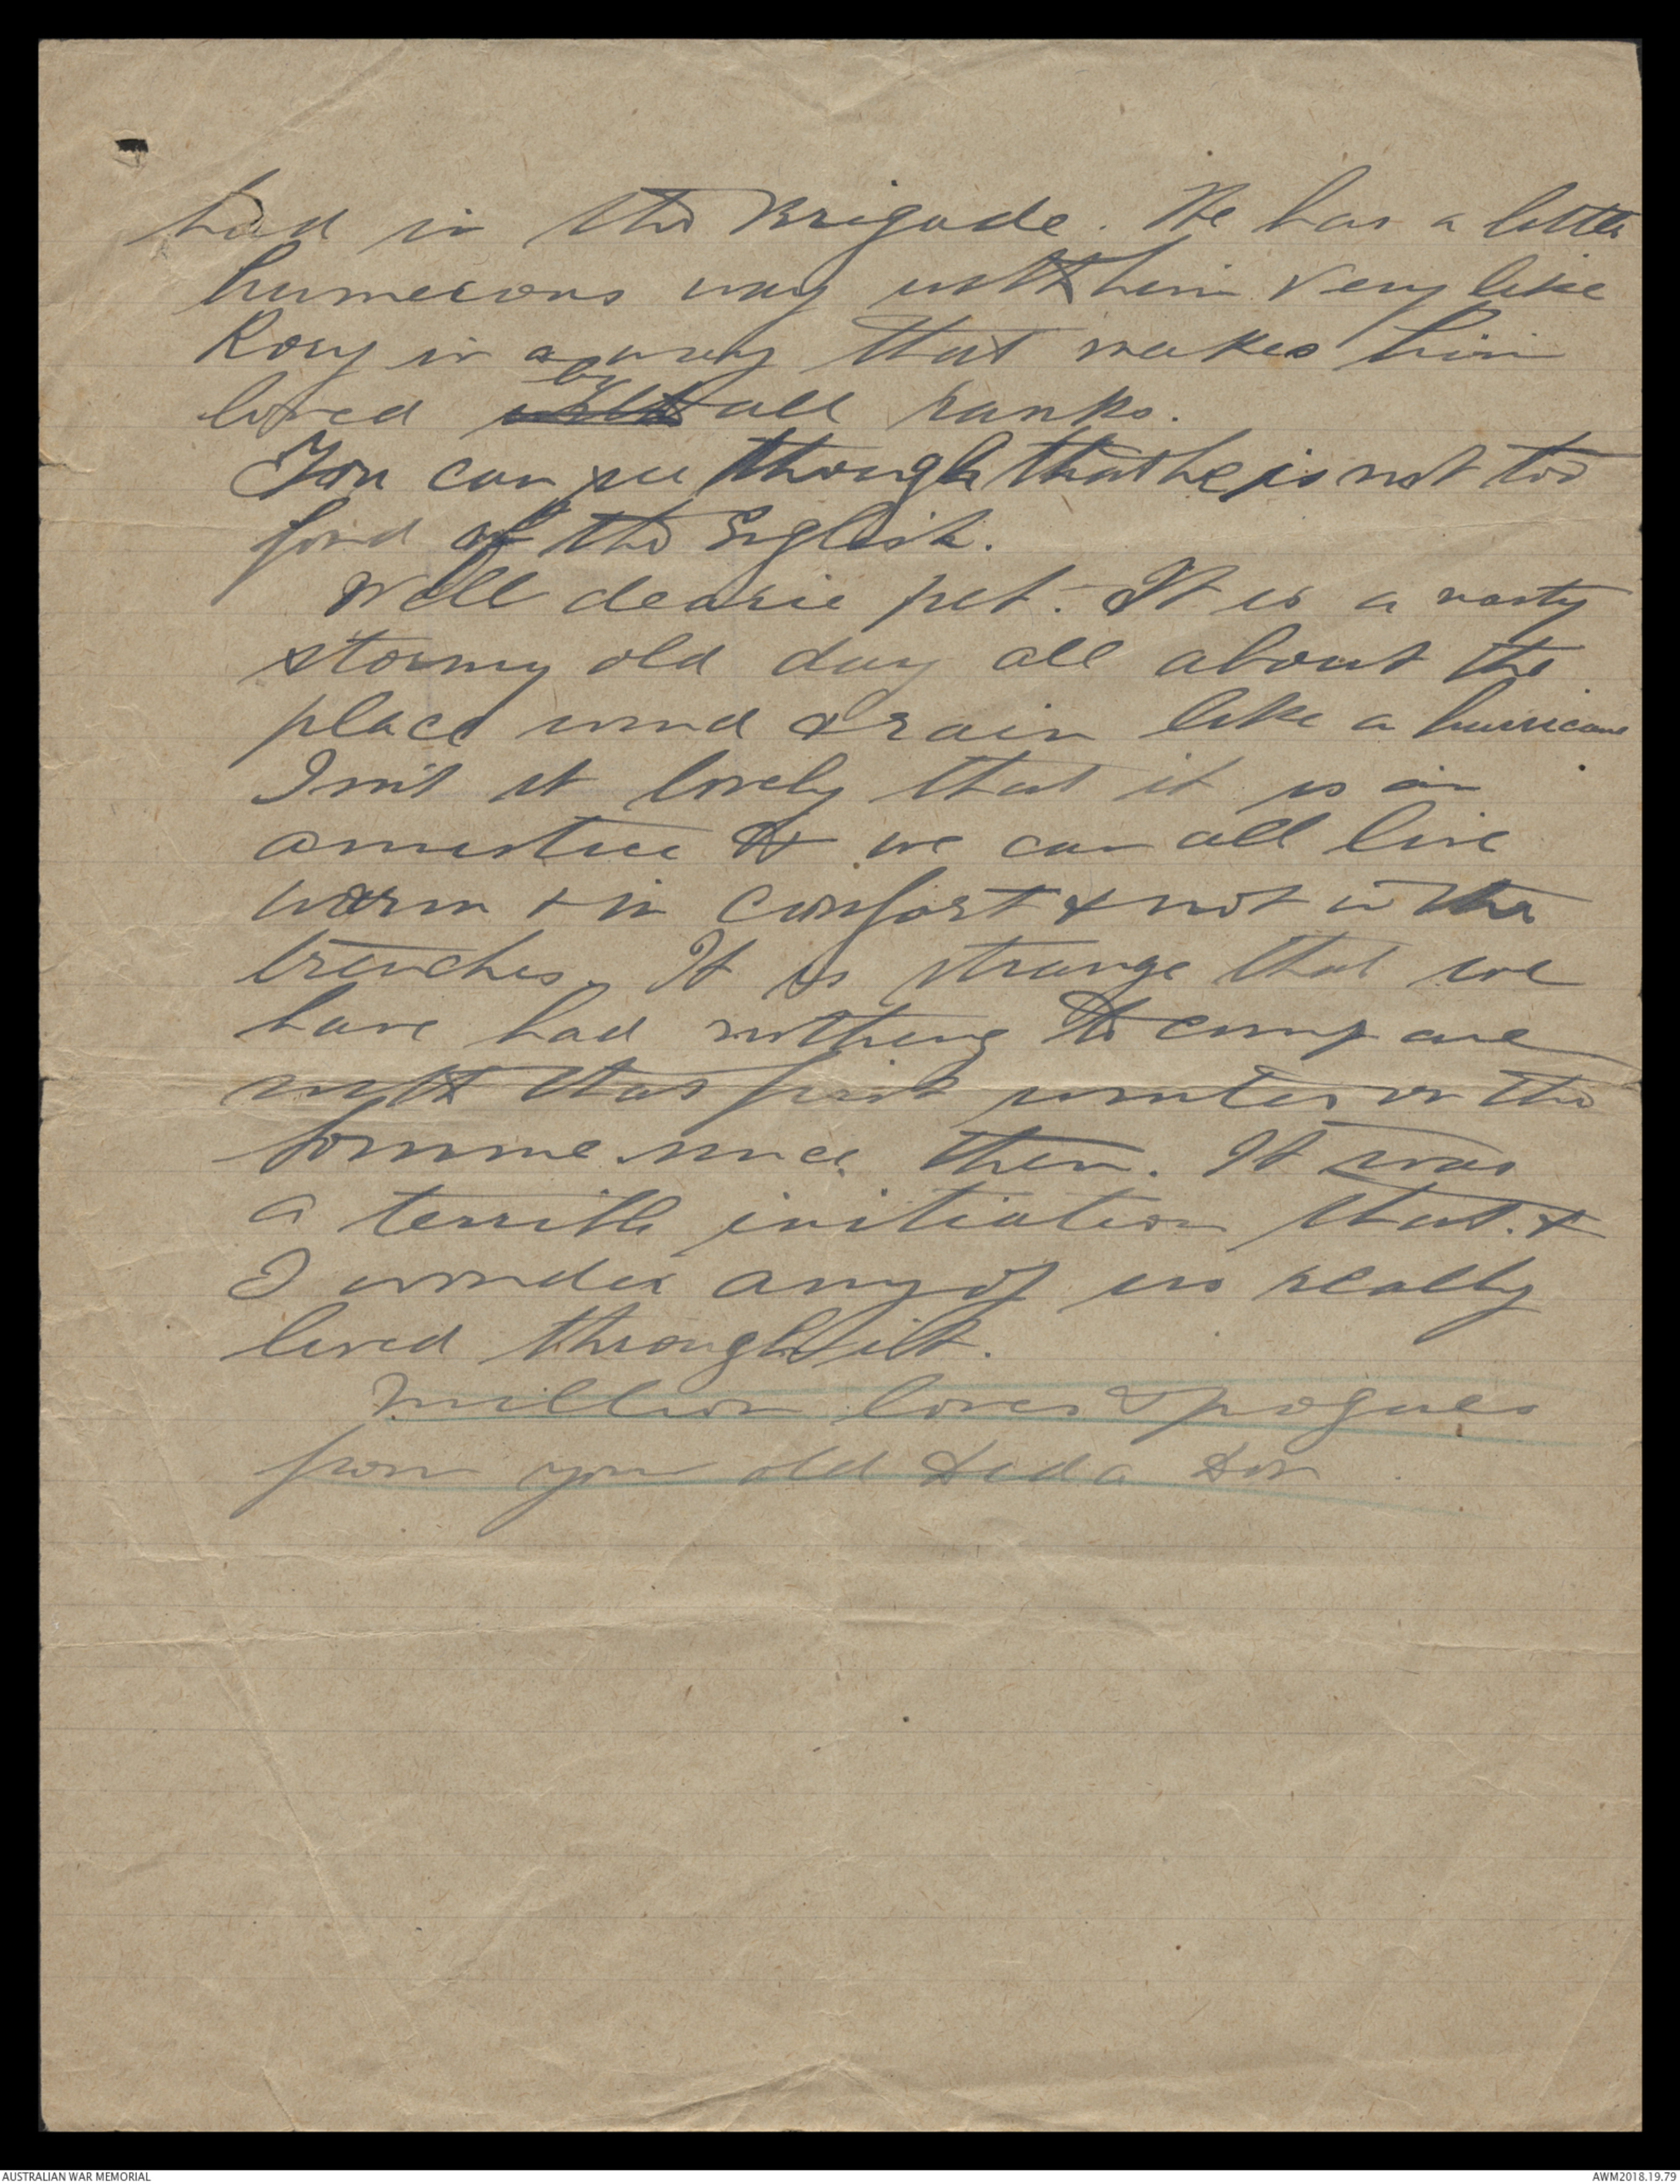 had in the Brigade. He has a little
humerous way with him very like
Rory in a way that makes him
loved by with all ranks.
You can see though that he is not too
fond of the English.
Well dearie pet. It is a nasty
stormy old day all about the
place wind & rain like a hurricane
Isn't it lovely that it is an
armistice & we can all live
warm & in comfort & not in the
trenches. It is strange that we
have had nothing to compare
with that first winter on the
Somme since then. It was
a terrible initiation that. &
I wonder any of us really
lived through it.
Million loves & pogues
from your old Dada Don
AUSTRALIAN WAR MEMORIAL
AWM2018.19.79